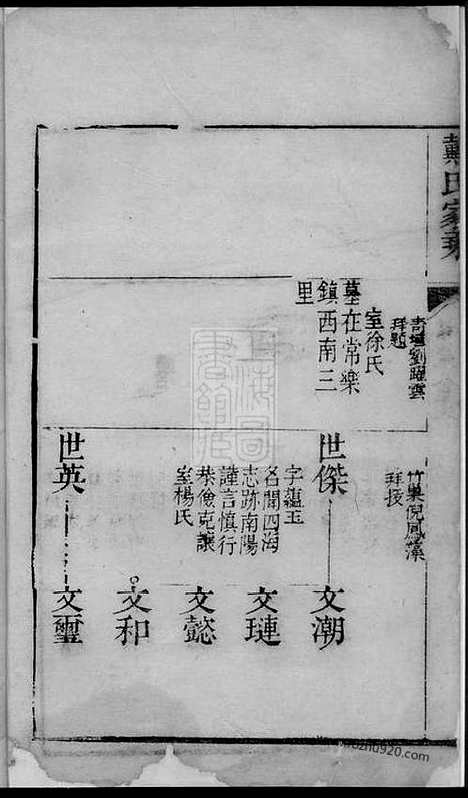 戴氏家乘
壽壇劉躍雲
拜題
竹巢倪鳳藻
拜授
室徐氏
墓在常樂
鎮西南三
里
世傑
字蘊玉
名聞四海
志跡南陽
謹言慎行
恭儉克讓
室楊氏
世英
文潮
文璉
文懿
文和
文璽
上海圖書館藏